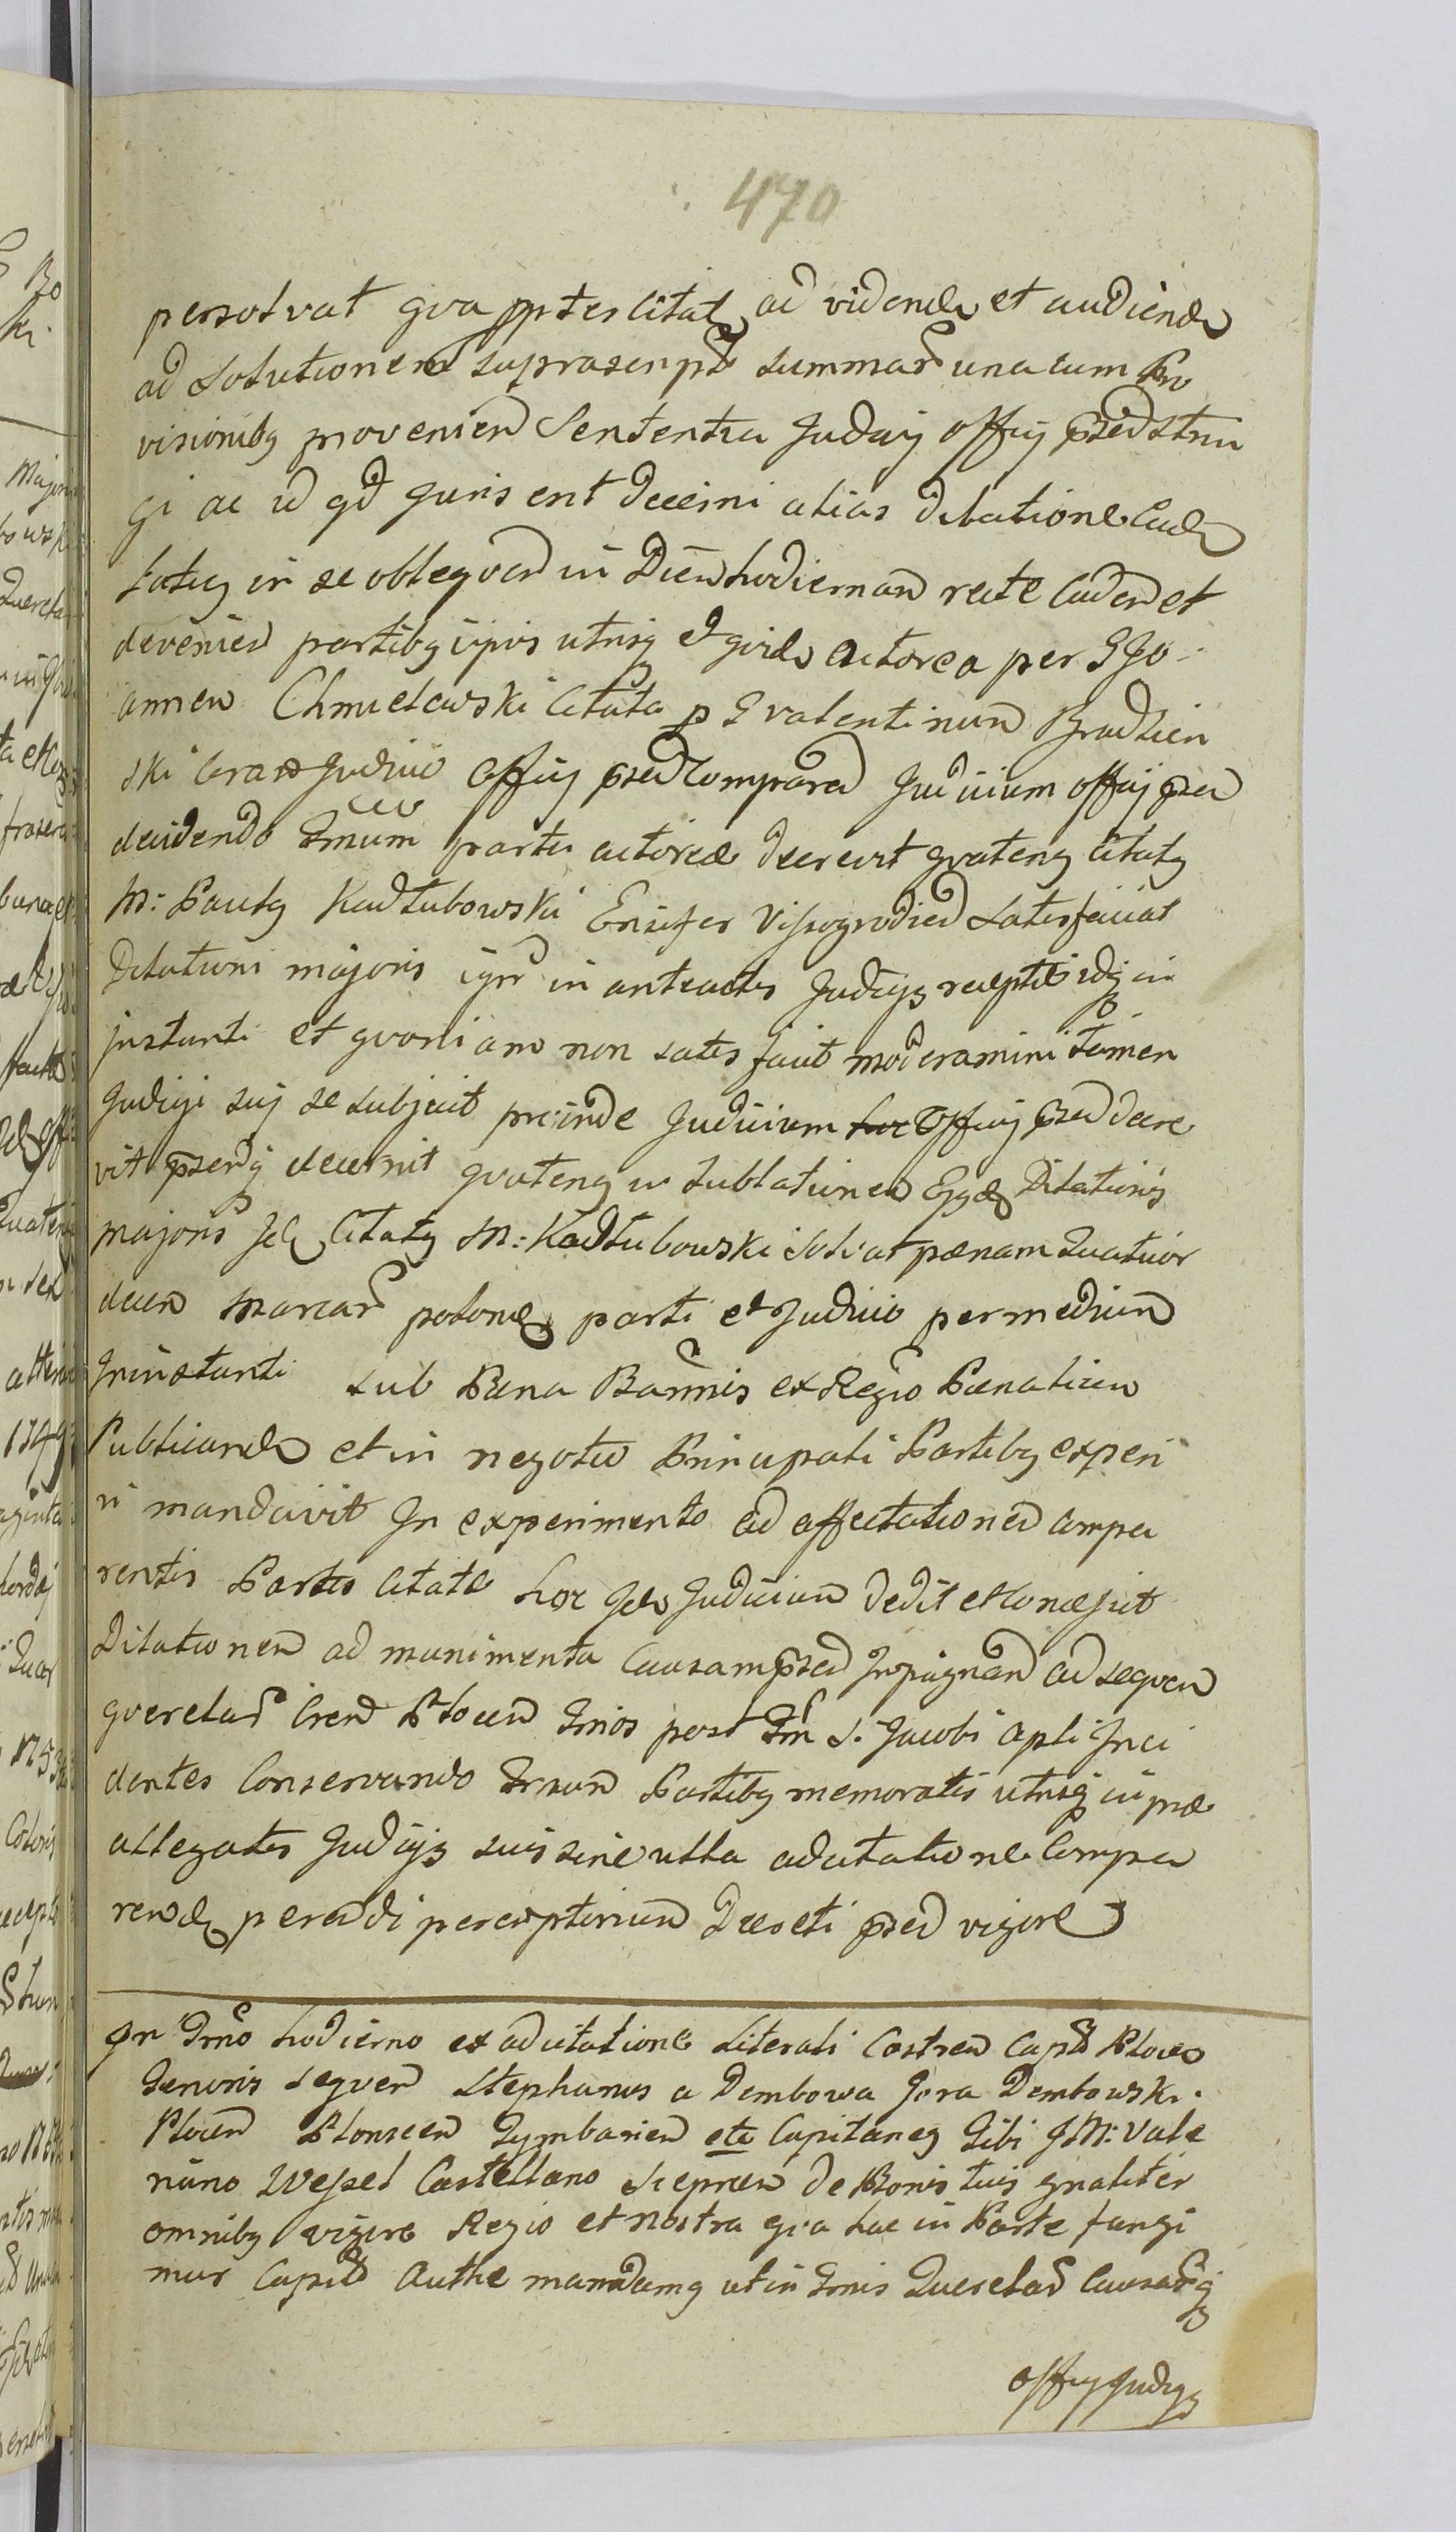 470
persolvat qva ppter Citat ad videnda et audienda
ad Solutionem suprascript Summar una cum Pro
visionibq provenien Sententia Judicij Offij psed Strin
gi ac id qd Juris erit decerni alias dilatione
in se obloqven in Diem hodiernam recte Caden et
devenien partibq ipsis utrisq et qvid Actorea per G Jo
annem Chmielewski Citata p G Valentinum Brudzien
ski Coram Judicio Offij psed Comparen Judicium Offij psed
decidendo Tmum partis actoreæ decrevit qvatenq Citatq
M: Paulq Kadłubowski Ensifer Vissogrodien Satisfaciat
Dilationi majoris in anteactis Judicijs receptæ idq in
instanti et qvoniam non satis fecit moderamini tamen
Judicij sui se subjecit proinde Judicium Offij psed decre
vit decernit qvatenq in Sublationem Dilationis
majoris Citatq M: Kadłubowski Solvat pænam Quatuor
decem Marcar polon parti et Judicio per medium
In instanti sub Pæna Bannis ex Regio Pænalium
Publicand et in negotio Principali Partibq experi
ri mandavit In experimento ad affectationem compa
rentis Partis Citatæ hoc Judicium dedit et Concessit
Dilationem ad munimenta Causam psed Inpugnan ad seqven
qverelar Plocen Tmios post Tm S. Jacobi Apli Inci
dentes Conservando Partibq memoratis utrisq in præ
allegatis Judicijs suis sine ulla adcitatione Compa
rend perendi peremptorium Decreti psed vigore

In Tmo hodierno ex adcitatione Literali Castren Capl Plocen
Tenoris seqven Stephanus a Dembowa Gora Dembowski
Plocen Plonscen Tymbarien etc Capitaneq Tibi J M: Vale
Wessel Castellano de Bonis tuis gnaliter
omnibq vigore Regio et nostra qva hac in Parte fungi
mur Capl Authe mandamq ut in Tmis Querelar Causarq
Offij Judicijs